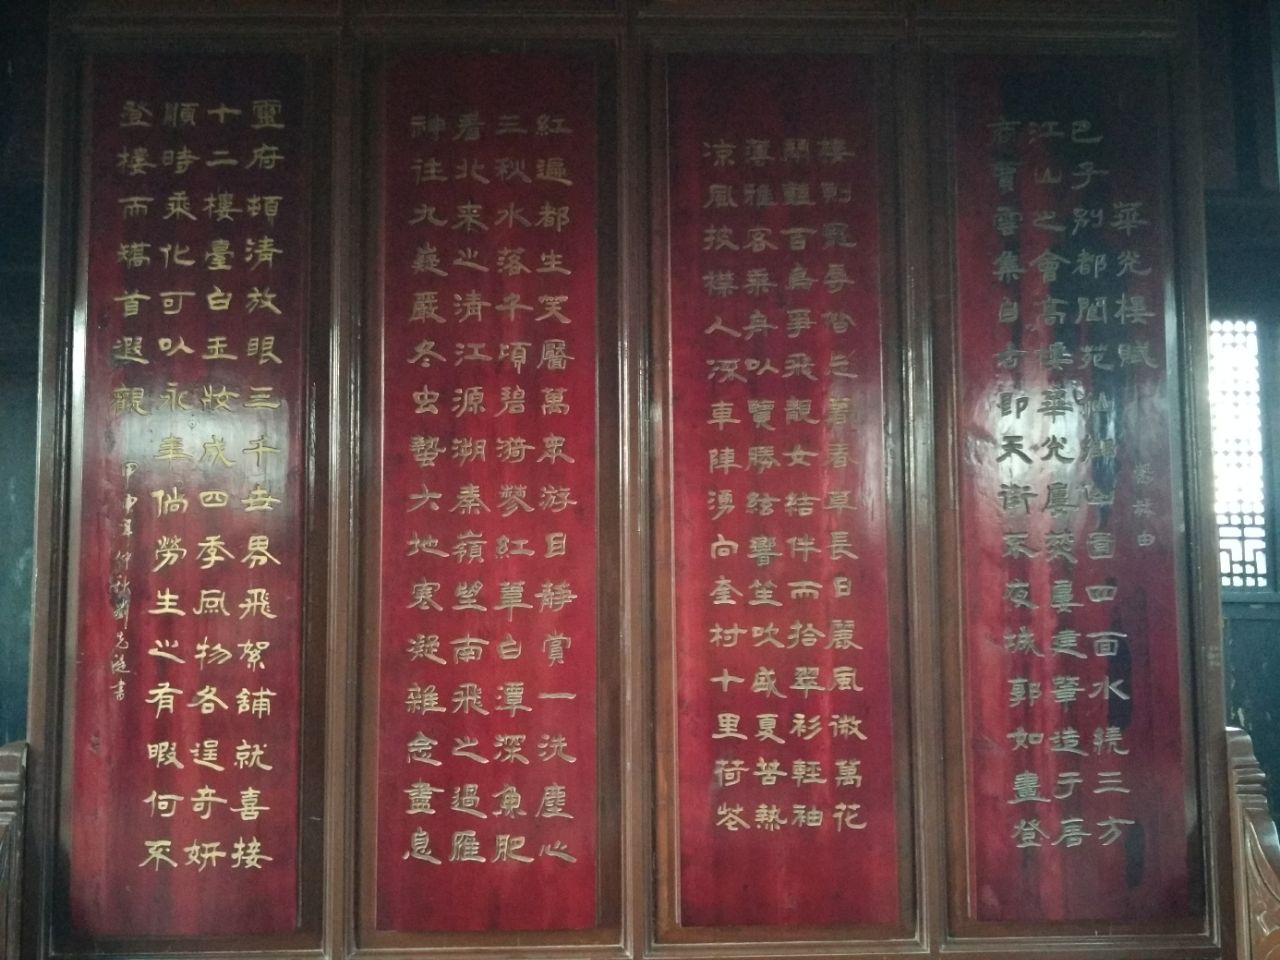 華光樓賦 林由
巴子別都閬苑仙鄉山圍四面水繞三方
江山之會高樓華光屢燹屢建肇造于唐
商賈雲集自古即天街不夜城郭如畫登
樓則寵辱皆忘若春草長日麗風微萬花
鬭豔百鳥爭飛靚女結伴而拾翠衫輕袖
薄雅客乘舟以覽勝絃響笙吹盛夏苦熱
凉風披襟人深車陣湧向奎村十里荷花
紅遍都生笑靨萬眾游目靜賞一洗塵心
三秋水落千頃碧漪蓼紅葦白潭深魚肥
看北來之清江源溯秦嶺望南飛之過雁
神往九嶷嚴冬虫蟄大地寒凝雜念盡息
靈府頓清放眼三千世界飛絮鋪就喜接
十二樓臺白玉妝成四季風物各逞奇妍
順時乘化可以永年倘勞生之有暇何不
登樓而矯首遐觀
甲申年仲秋劉先澄書